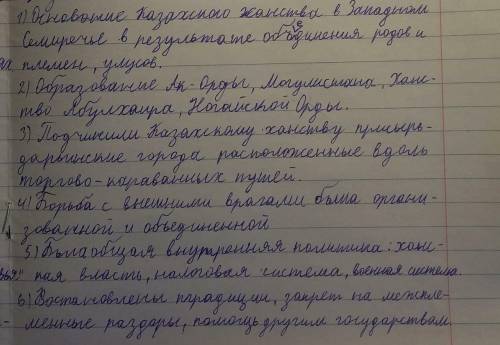 1) Основание Казахского ханства в Западном
Семиречье в результате объединения родов и
племен, улусов.
2) Образование Ак-Орды, Могулистана, Ханс-
тво Абулхаира, Ногайской Орды.
3) Подчинили Казахскому ханству присырь-
дарьинские города расположенные вдоль
торгово-караванных путей.
4) Борьба с внешними врагами была органи-
зованной и объединенной
5) Была общая внутренняя политика: хан-
ская власть, налоговая система, военная система.
6) Востановлены традиции, запрет на межпле-
менные раздоры, помощь другим государствам.